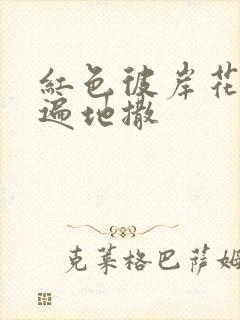 紅色彼岸花
遍地撒
克莱格巴萨姆